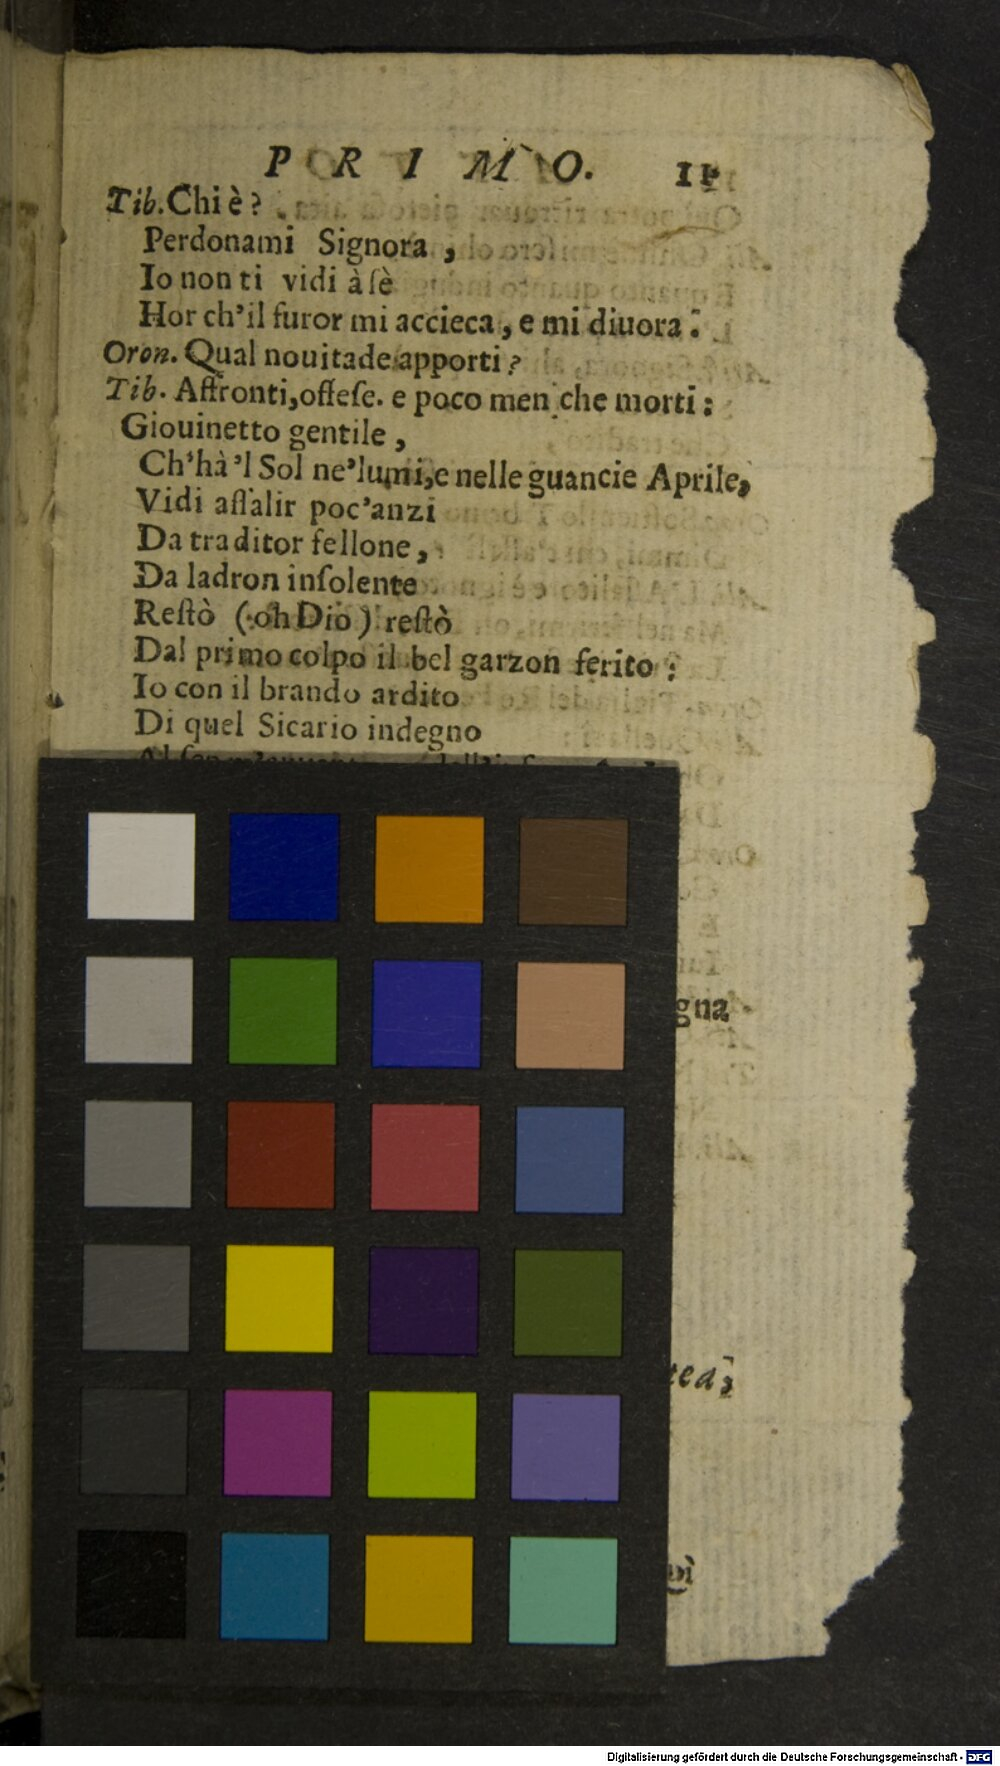 PRIMO. 11
Tib. Chi è ?
Perdonami Signora ,
Io non ti vidi à fè
Hor ch'il furor mi accieca, e mi diuora.
Oron. Qual nouitade apporti ?
Tib. Affronti, offese. e poco men che morti :
Giouinetto gentile ,
Ch'hà 'l Sol ne' lumi, e nelle guancie Aprile,
Vidi assalir poc'anzi
Da traditor fellone ,
Da ladron insolente
Restò ( oh Dio ) restò
Dal primo colpo il bel garzon ferito :
Io con il brando ardito
Di quel Sicario indegno
gna
Digitalisierung gefördert durch die Deutsche Forschungsgemeinschaft - DFG